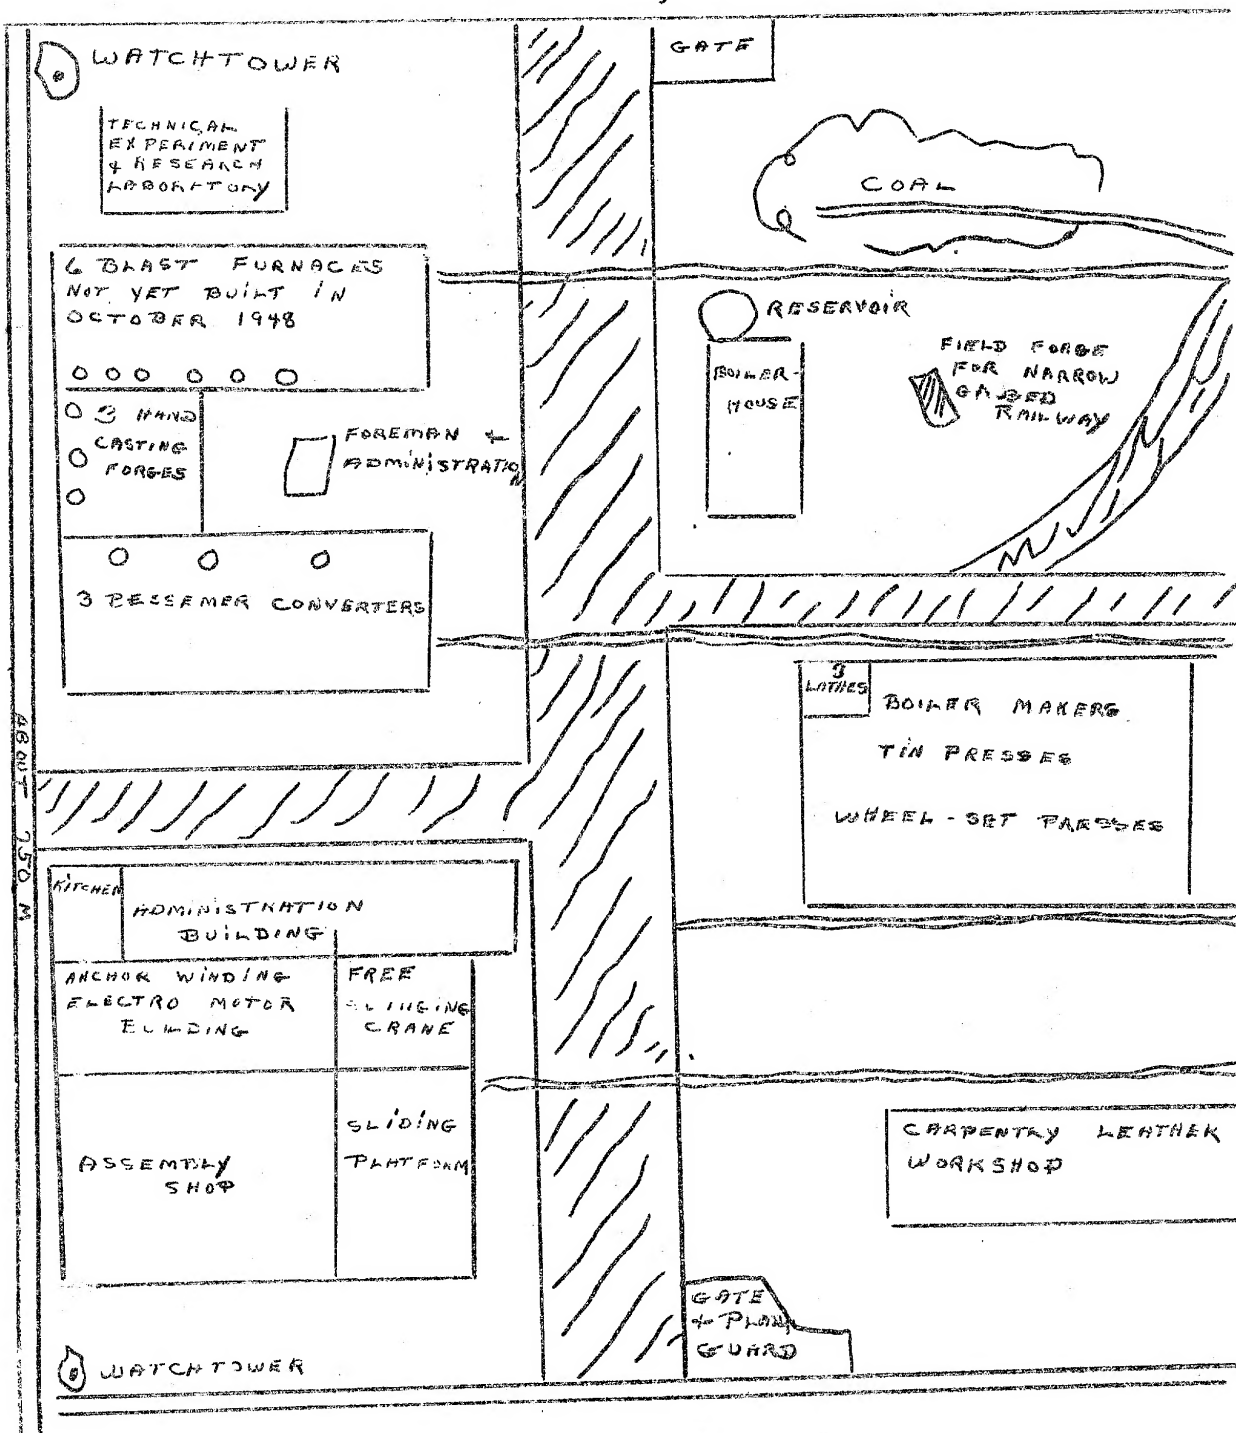 WATCHTOWER
GATE
TECHNICAL
EXPERIMENT
& RESEARCH
LABORATORY
COAL
6 BLAST FURNACES
NOT YET BUILT IN
OCTOBER 1948
RESERVOIR
BOILER-
HOUSE
FIELD FORGE
FOR NARROW
GAUGED
RAILWAY
3 HAND
CASTING
FORGES
FOREMAN &
ADMINISTRATION
3 BESSEMER CONVERTERS
3
LATHES
BOILER MAKERS
TIN PRESSES
WHEEL-SET PRESSES
ABOUT 750 M
KITCHEN
ADMINISTRATION
BUILDING
ANCHOR WINDING
ELECTRO MOTOR
BUILDING
FREE
CRANE
SLIDING
PLATFORM
ASSEMBLY
SHOP
CARPENTRY LEATHER
WORKSHOP
GATE
& PLANT
GUARD
WATCHTOWER